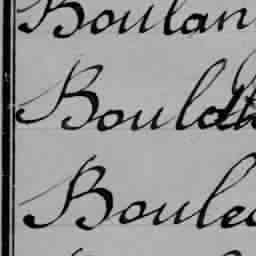 Boulan
Bouldt
Boulea